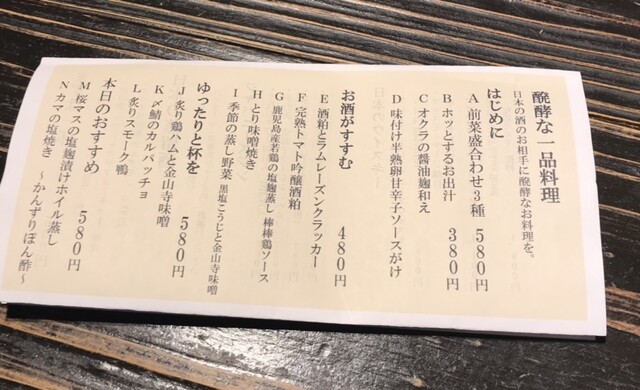 醗酵な一品料理
日本の酒のお相手に醗酵なお料理を。
はじめに
A 前菜盛合わせ3種 580円
B ホッとするお出汁 380円
C オクラの醤油麹和え
D 味付け半熟卵甘辛子ソースがけ
お酒がすすむ 480円
E 酒粕とラムレーズンクラッカー
F 完熟トマト吟醸酒粕
G 鹿児島産若鶏の塩麹蒸し 棒棒鶏ソース
H とり味噌焼き
I 季節の蒸し野菜 黒塩こうじと金山寺味噌
ゆったりと杯を 580円
J 炙り鶏ハムと金山寺味噌
K 〆鯖のカルパッチョ
L 炙りスモーク鴨
本日のおすすめ 580円
M 桜マスの塩麹漬けホイル蒸し
N カマの塩焼き ～かんずりぽん酢～